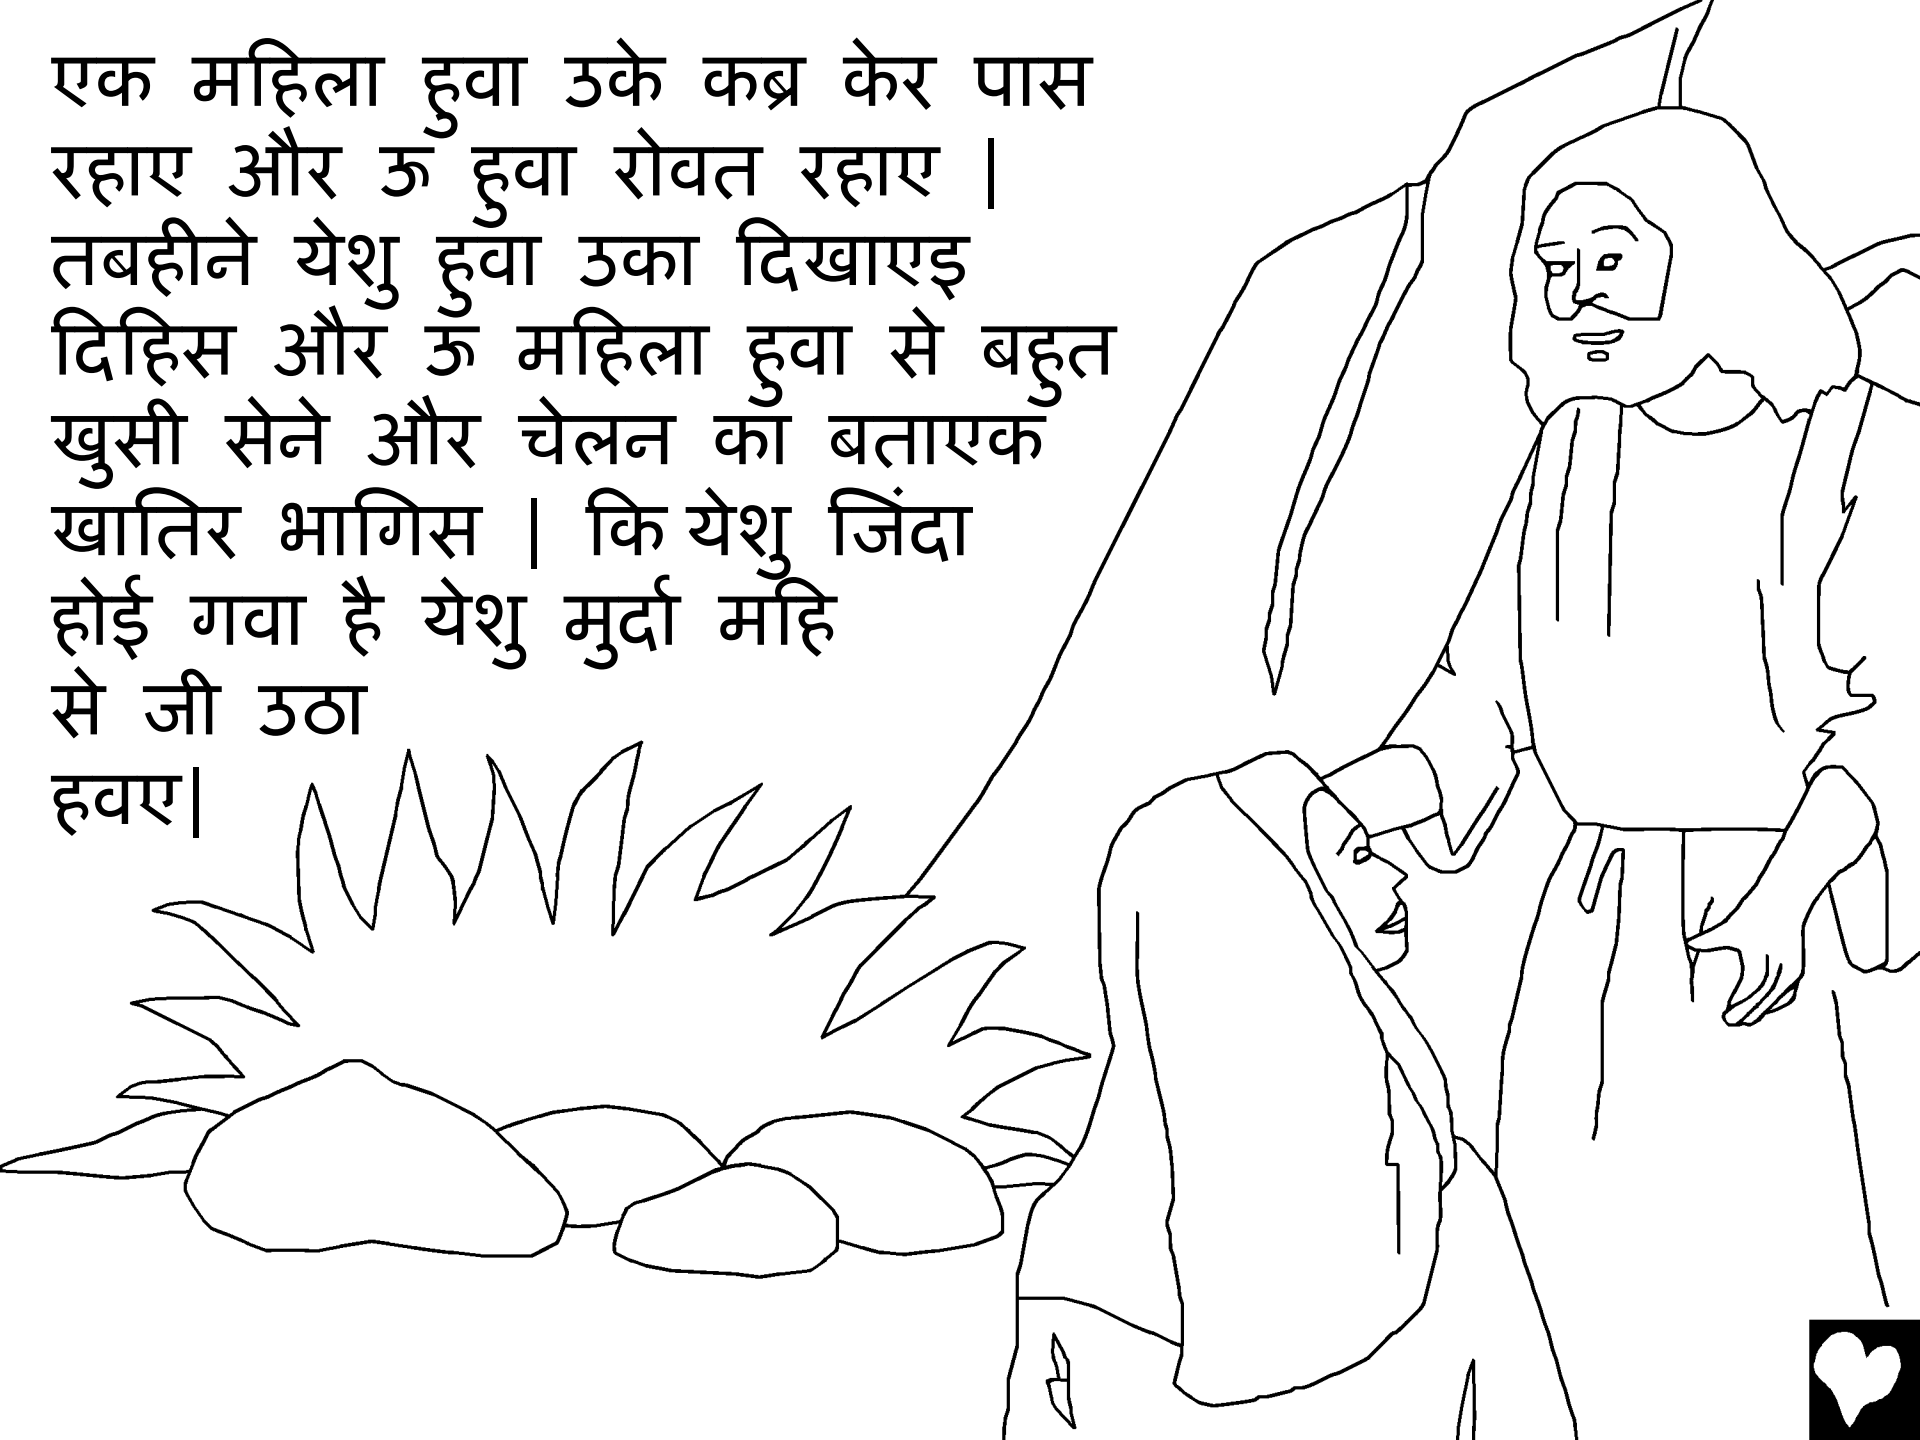 एक महिला हुवा उके कब्र केर पास
रहाए और ऊ हुवा रोवत रहाए |
तबहीने येशु हुवा उका दिखाएइ
दिहिस और ऊ महिला हुवा से बहुत
खुसी सेने और चेलन का बताएक
खातिर भागिस | कि येशु जिंदा
होई गवा है येशु मुर्दा महि
से जी उठा
हवए|